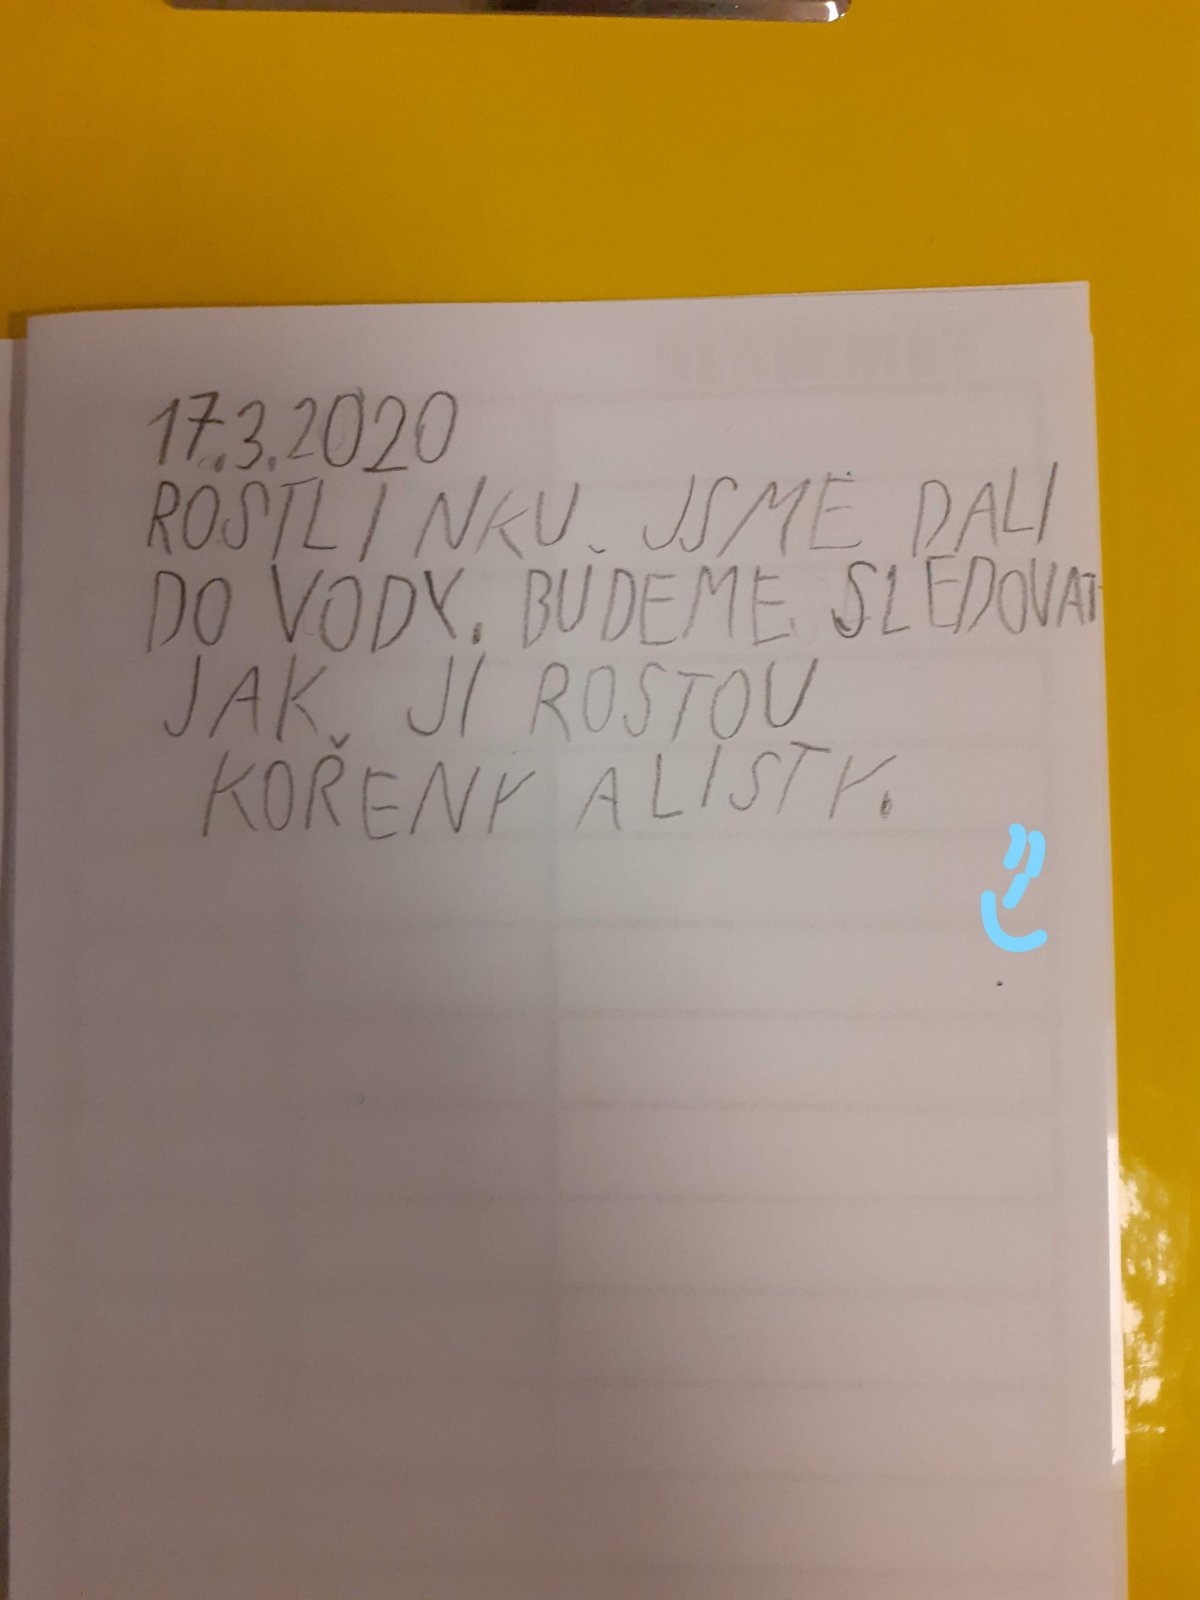 17.3.2020
ROSTLINKU JSME DALI
DO VODY. BUDEME SLEDOVAT
JAK JÍ ROSTOU
KOŘENY A LISTY.